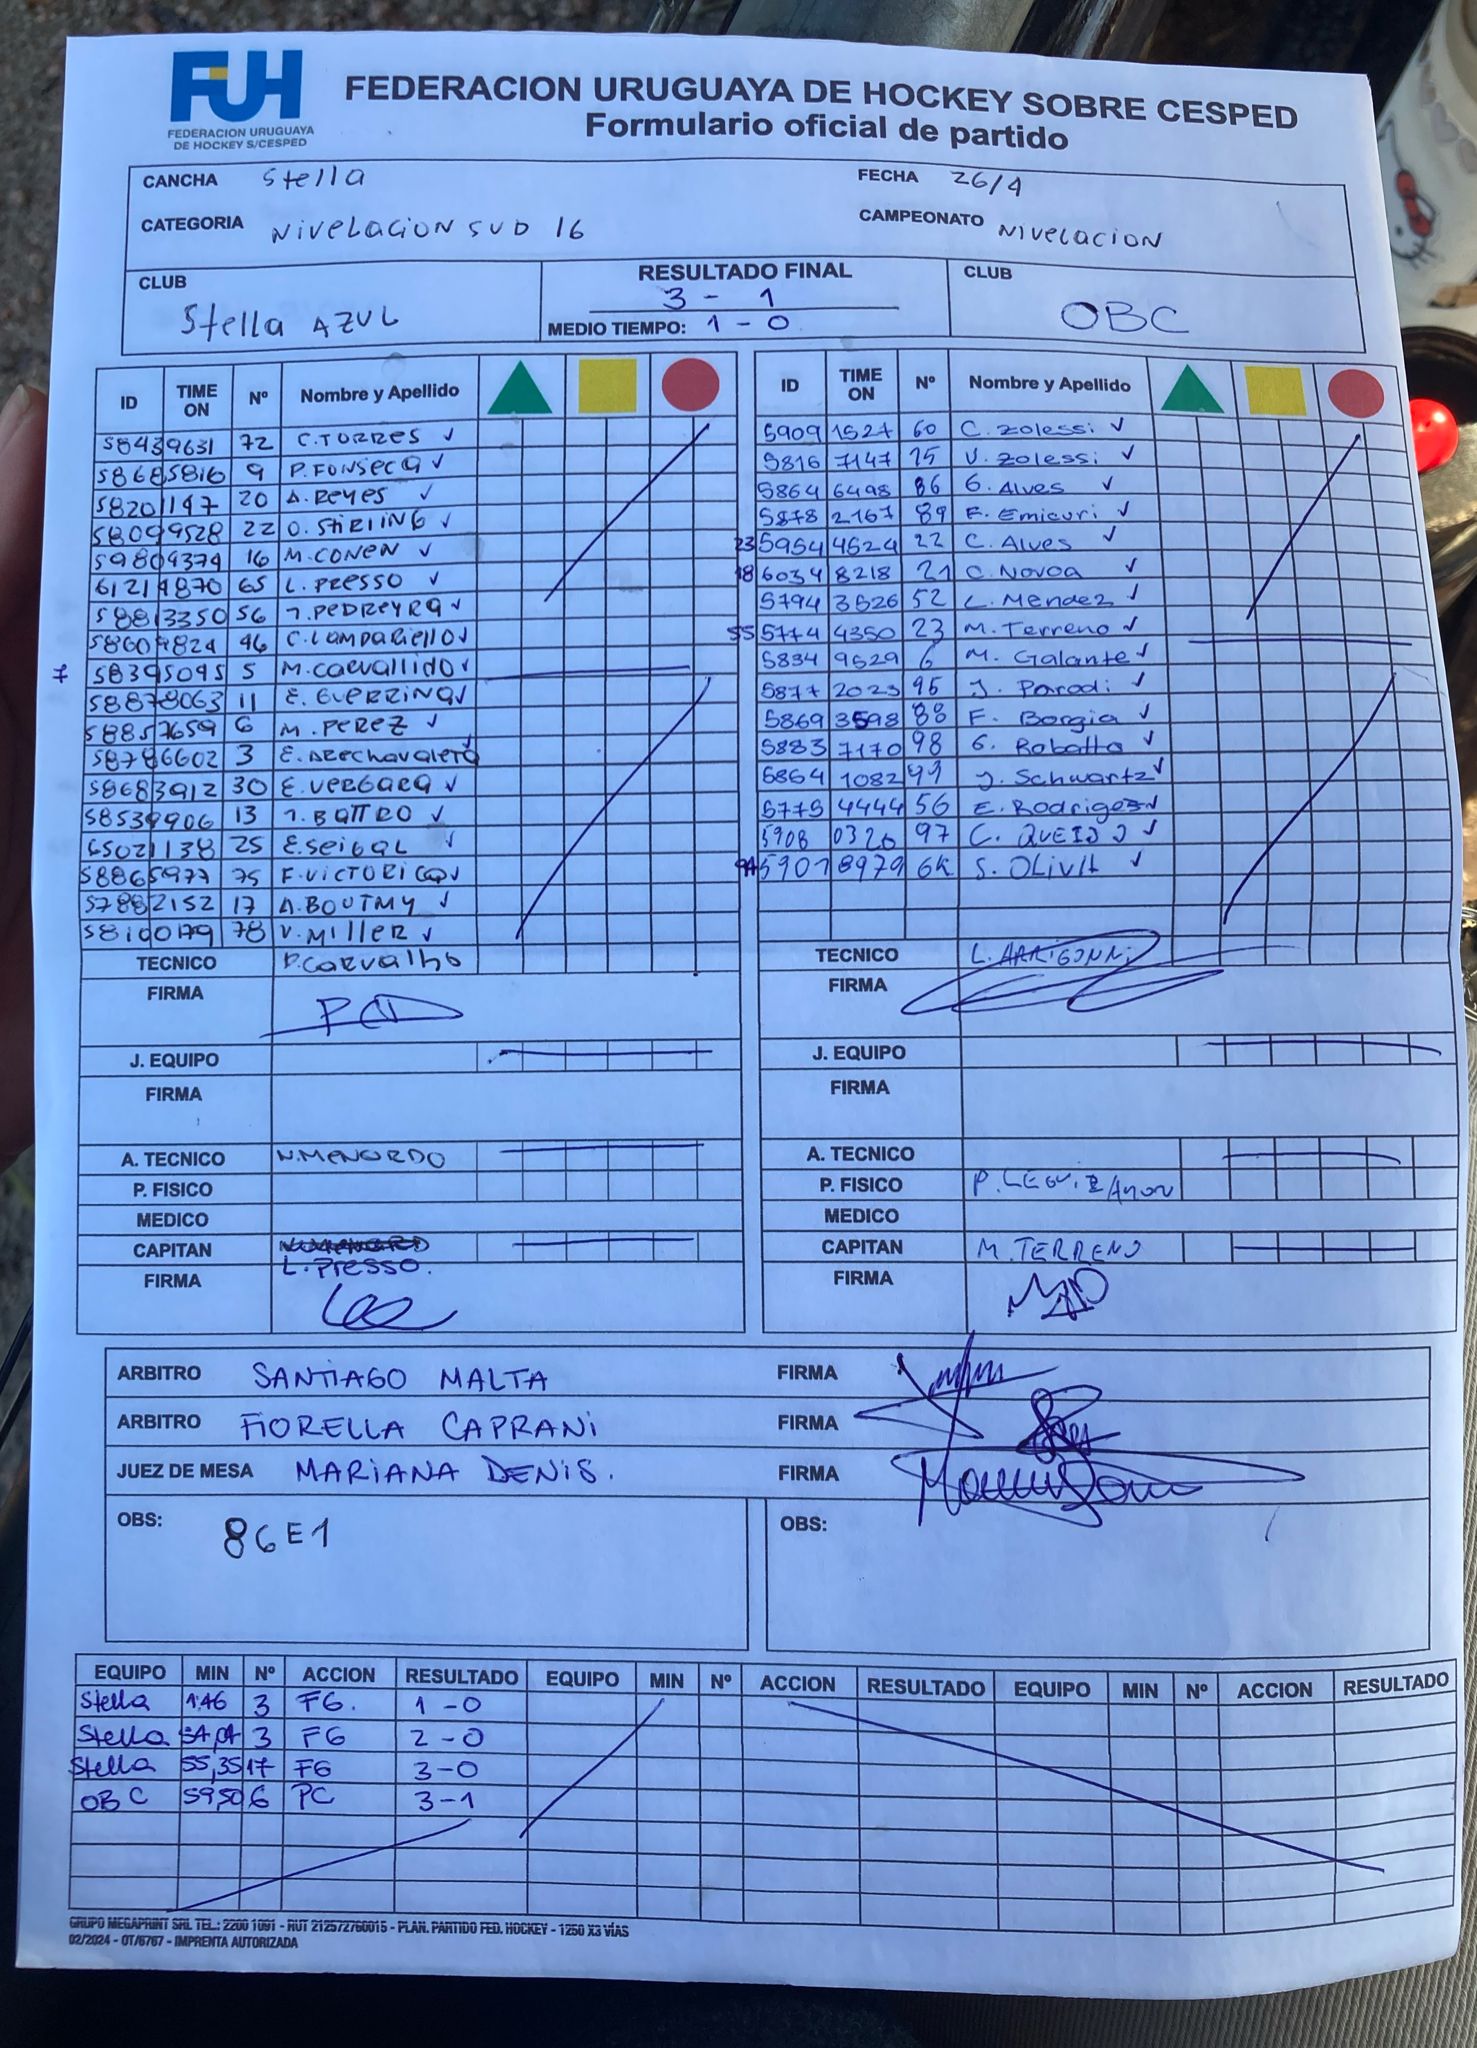 FUH
FEDERACION URUGUAYA
DE HOCKEY S/CESPED
FEDERACION URUGUAYA DE HOCKEY SOBRE CESPED
Formulario oficial de partido
CANCHA Stella FECHA 26/4
CATEGORIA NIVELACION SUB 16 CAMPEONATO NIVELACION
CLUB RESULTADO FINAL CLUB
Stella AZUL 3 - 1 OBC
MEDIO TIEMPO: 1 - 0
ID TIME ON Nº Nombre y Apellido ID TIME ON Nº Nombre y Apellido
58439631 72 C.TORRES ✓ 5909 1527 60 C. Zolessi ✓
58685816 9 P.FONSECA ✓ 5816 7147 25 V. Zolessi ✓
58201147 20 A.REYES ✓ 5864 6498 86 G. Alves ✓
58099528 22 O.STIRLING ✓ 5878 2167 89 F. Emicuri ✓
59809374 16 M.CONEN ✓ 23 5954 4524 22 C. Alves ✓
61214870 65 L.PRESSO ✓ 18 6034 8218 21 C. Novoa ✓
58813350 56 J.PEDREYRA ✓ 5794 3526 52 L. Mendez ✓
58604824 46 C.LAMPARIELLO ✓ 55 5774 4350 23 M. Terreno ✓
7 58395095 5 M.CARVALLIDO ✓ 5834 9529 6 M. Galante ✓
58878063 11 E. GUERRINA ✓ 5877 2023 95 J. Parodi ✓
58857659 6 M. PEREZ ✓ 5869 3598 88 F. Borgia ✓
58786602 3 E.ARECHAVALETA ✓ 5883 7170 98 G. Robatto ✓
58683912 30 E.VERGARA ✓ 5864 1082 99 J. Schwartz ✓
58539906 13 J.BATTRO ✓ 5775 4444 56 E. Rodrigez ✓
65021138 25 E.SEIGAL ✓ 5908 0320 97 C. QUEIJO ✓
58865977 75 F.VICTORICA ✓ 94 5901 8979 6K S. OLIVIL ✓
57882152 17 A.BOUTMY ✓
58100179 78 V.MILLER ✓
TECNICO P.Carvalho TECNICO L. ARRIGONNI
FIRMA FIRMA
J. EQUIPO J. EQUIPO
FIRMA FIRMA
A. TECNICO N.MENARDO A. TECNICO
P. FISICO P. FISICO
MEDICO MEDICO
CAPITAN CAPITAN M. TERRENO
L.Presso.
FIRMA FIRMA
ARBITRO SANTIAGO MALTA FIRMA
ARBITRO FIORELLA CAPRANI FIRMA
JUEZ DE MESA MARIANA DENIS. FIRMA
OBS: 86E1 OBS:
EQUIPO MIN Nº ACCION RESULTADO EQUIPO MIN Nº ACCION RESULTADO EQUIPO MIN Nº ACCION RESULTADO
Stella 1.46 3 FG. 1 - 0
Stella 3 FG 2 - 0
Stella 55,35 17 FG 3 - 0
OBC 59,50 6 PC 3 - 1
GRUPO MEGAPRINT SRL TEL.: 2200 1091 - RUT 212572760015 - PLAN. PARTIDO FED. HOCKEY - 1250 X3 VÍAS
02/2024 - OT/6767 - IMPRENTA AUTORIZADA